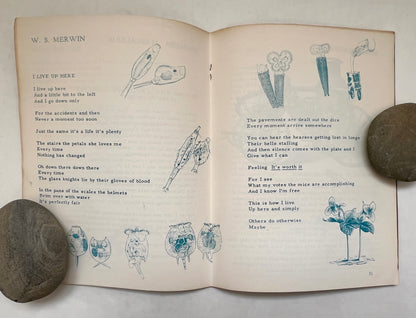 W. S. MERWIN
I LIVE UP HERE
I live up here
And a little bit to the left
And I go down only
For the accidents and then
Never a moment too soon
Just the same it's a life it's plenty
The stairs the petals she loves me
Every time
Nothing has changed
Oh down there down there
Every time
The glass knights lie by their gloves of blood
In the pans of the scales the helmets
Brim over with water
It's perfectly fair
The pavements are dealt out the dice
Every moment arrive somewhere
You can hear the hearses getting lost in lungs
Their bells stalling
And then silence comes with the plate and I
Give what I can
Feeling It's worth it
For I see
What my votes the mice are accomplishing
And I know I'm free
This is how I live
Up here and simply
Others do otherwise
Maybe